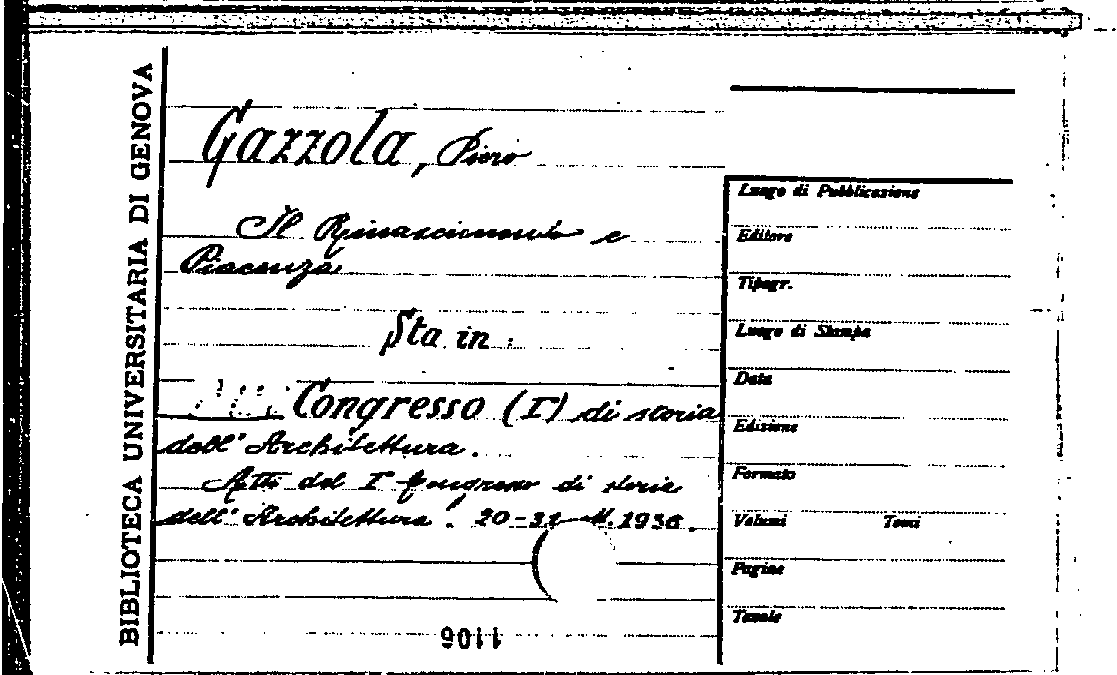 BIBLIOTECA UNIVERSITARIA DI GENOVA
Gazzola, Piero
Il Rinascimento e
Piacenza
Sta in:
Congresso (I°) di storia
dell'Architettura.
Atti del I° Congresso di storia
dell'Architettura. 20-31 1936.
1106
Luogo di Pubblicazione
Editore
Tipogr.
Luogo di Stampa
Data
Edizione
Formato
Volumi Tomi
Pagine
Tavole